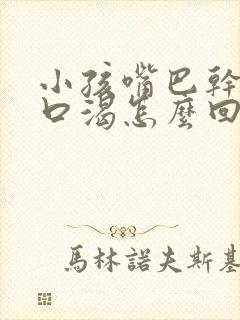 小孩嘴巴幹
口渴怎麼回
馬林諾夫斯基